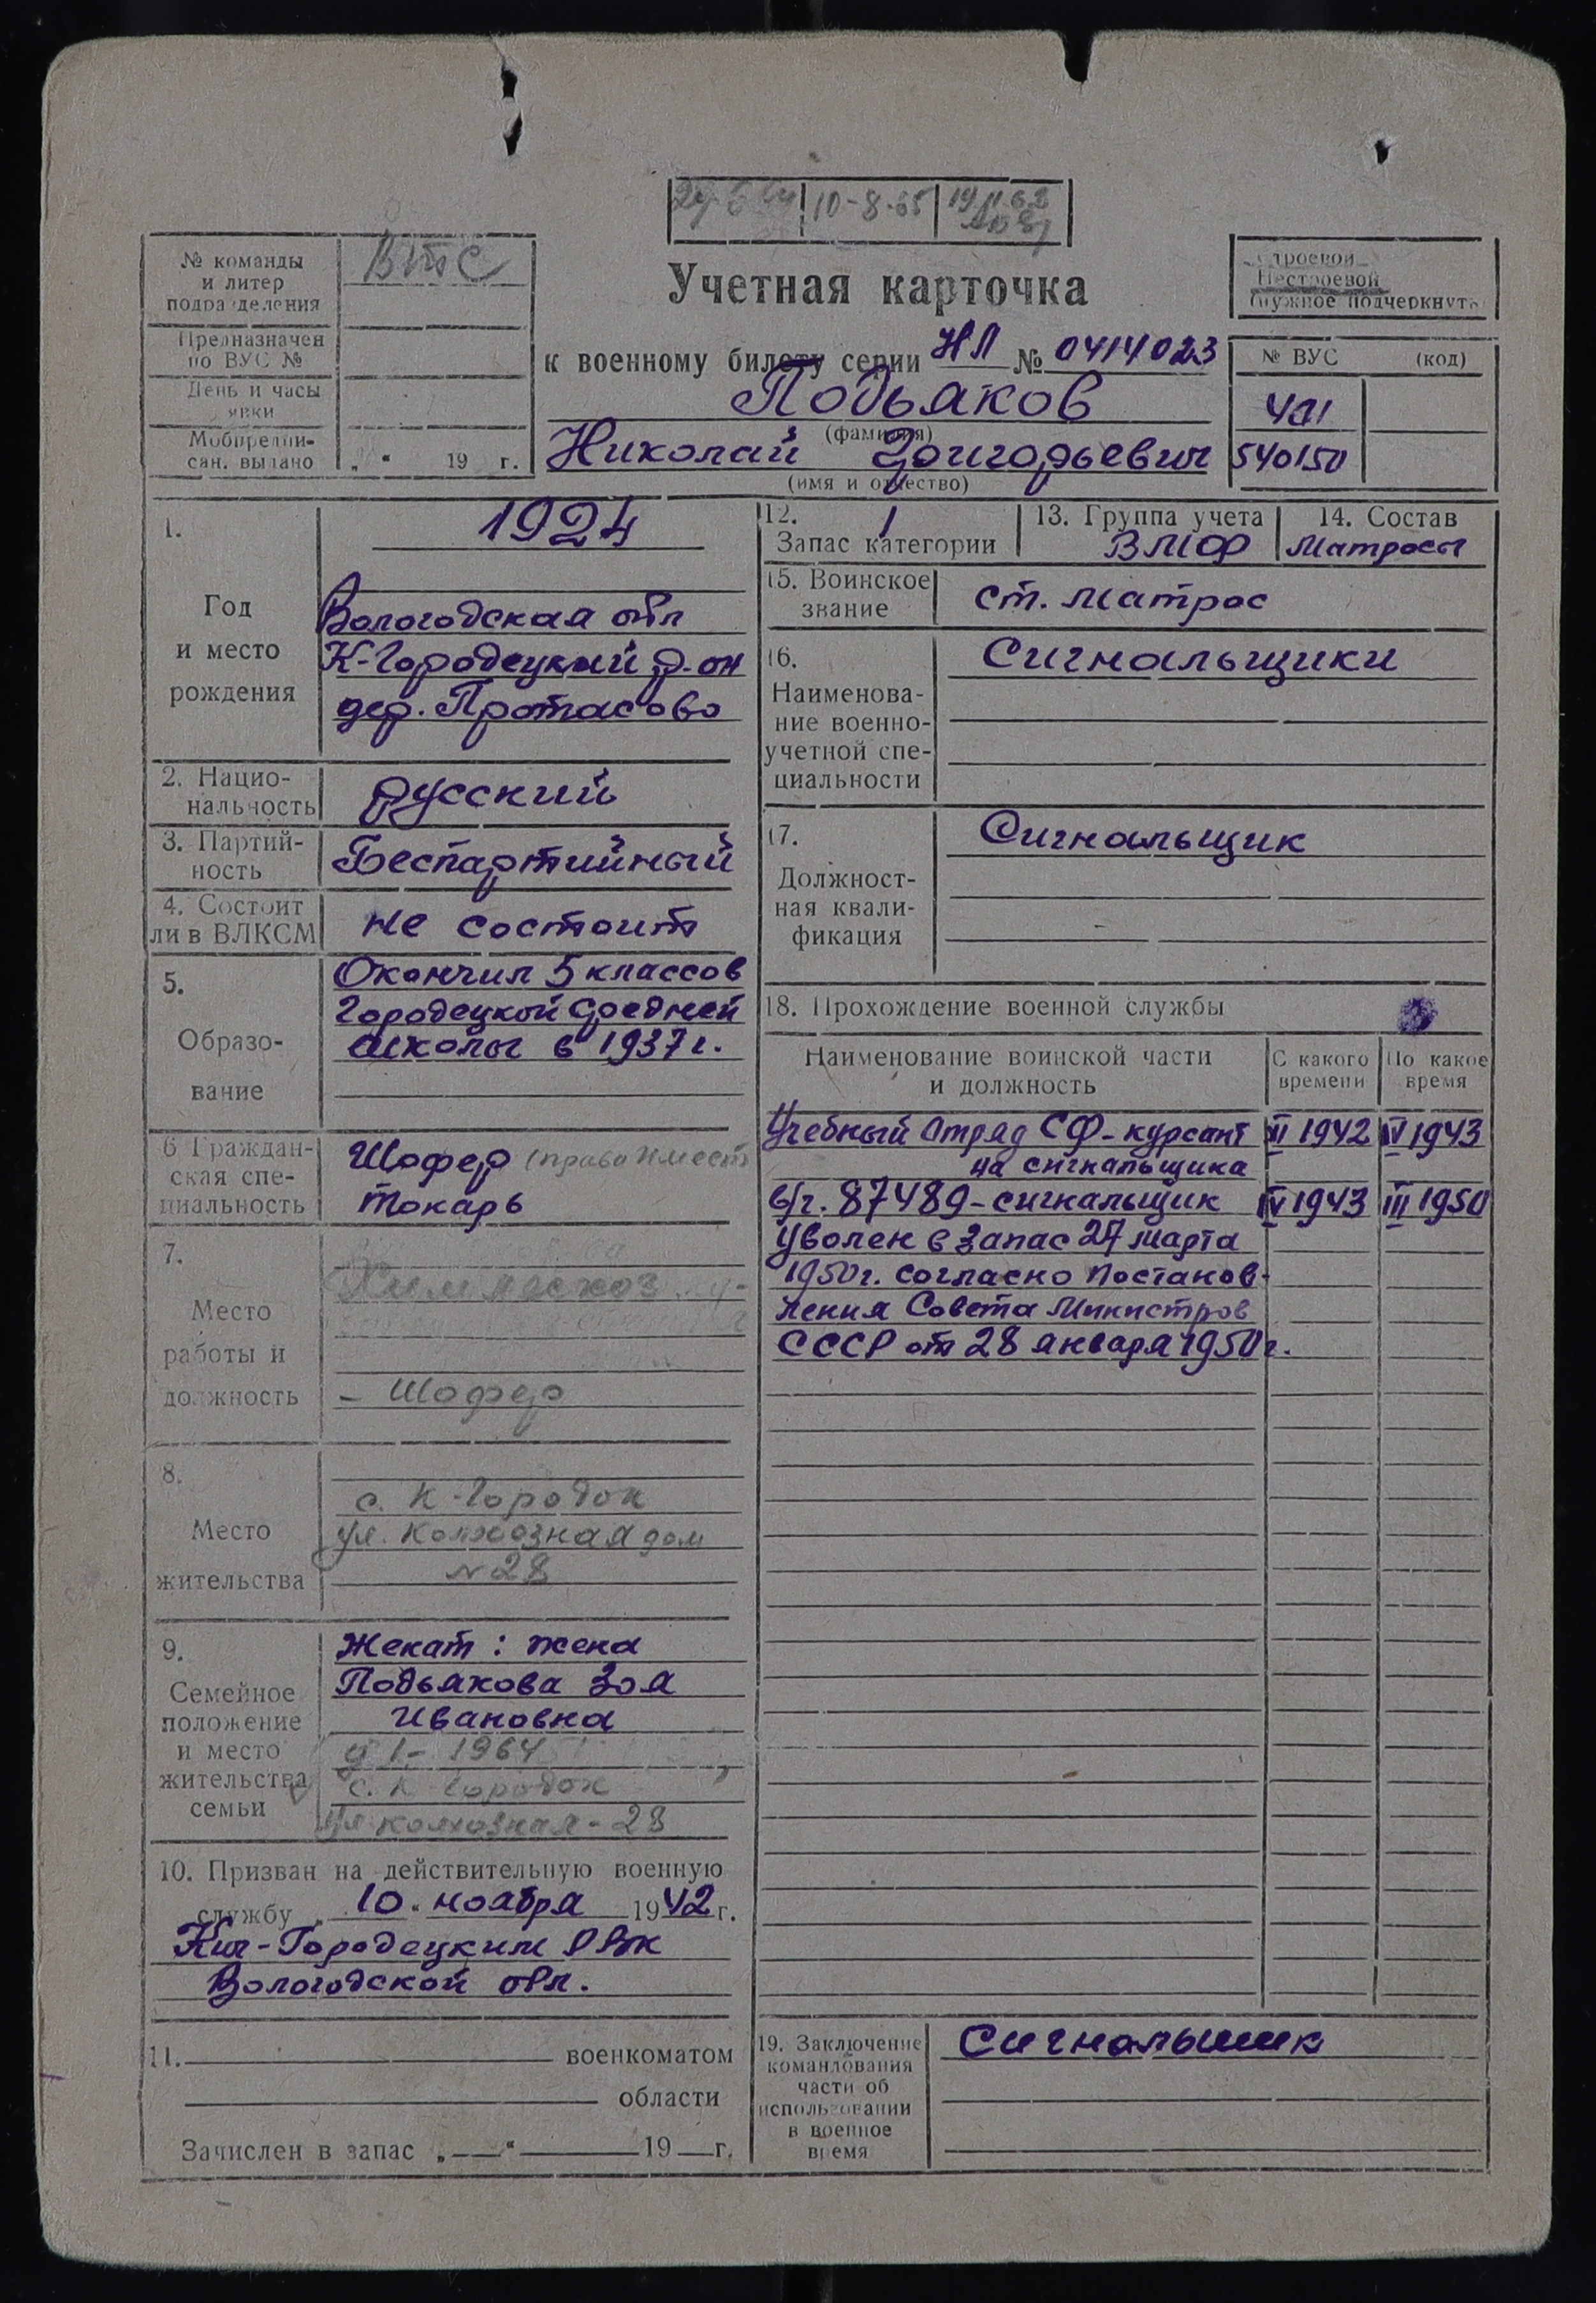 10-8-65
19.11.62
№ команды
и литер
подразделения
Предназначен
по ВУС №
День и часы
явки
Мобпредпи-
сан. выдано „ “ 19 г.
Учетная карточка
к военному билету серии НЛ № 0414023
Подьяков
(фамилия)
Николай Григорьевич
(имя и отчество)
Строевой
Нестроевой
(нужное подчеркнуть
№ ВУС (код)
540150
1.
Год
и место
рождения
1924
Вологодская обл
К-Городецкий р-он
дер. Протасово
2. Нацио-
нальность
русский
3. Партий-
ность
Беспартийный
4. Состоит
ли в ВЛКСМ
не состоит
5.
Образо-
вание
Окончил 5 классов
Городецкой средней
школы в 1937 г.
6 Граждан-
ская спе-
циальность
Шофер (права имеет
токарь
7.
Место
работы и
должность
Химлесхоз
- Шофер
8.
Место
жительства
с. К-Городок
ул. Колхозная дом
№ 28
9.
Семейное
положение
и место
жительства
семьи
Женат: жена
Подьякова Зоя
Ивановна
1964
с. К-Городок
ул Колхозная - 28
10. Призван на действительную военную
службу „ 10 “ ноября 1942 г.
Кич-Городецким РВК
Вологодской обл.
11. военкоматом
области
Зачислен в запас „ “ 19 г.
12. 1
Запас категории
13. Группа учета
ВМФ
14. Состав
Матросы
15. Воинское
звание
ст. матрос
16.
Наименова-
ние военно-
учетной спе-
циальности
Сигнальщики
17.
Должност-
ная квали-
фикация
Сигнальщик
18. Прохождение военной службы
Наименование воинской части
и должность
С какого
времени
По какое
время
Учебный Отряд СФ - курсант
на сигнальщика
1942 IV 1943
в/ч. 87489 - сигнальщик IV 1943 III 1950
Уволен в запас 27 марта
1950 г. согласно Постанов-
ления Совета Министров
СССР от 28 января 1950 г.
19. Заключение
командования
части об
использовании
в военное
время
Сигнальщик